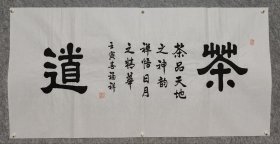 茶道
茶品天地
之神韵
祥悟日月
之精華
壬寅春福祥